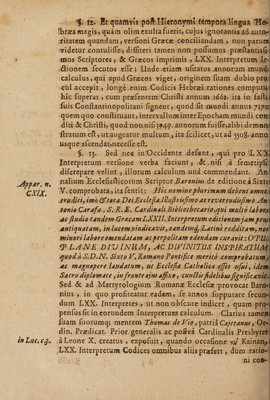 §. 12. Et quamvis post Hieronymi tempora lingua He-
bræa magis, quàm olim exulta fuerit, cujus ignorantia ad auto-
ritatem quandam, versioni Græcæ conciliandam, non parum
videtur contulisse, differti tamen non possumus præstantissi-
mos Scriptores, & Græcos imprimis LXX. Interpretum le-
ctionem secutos esse: Unde etiam usitatus annorum mundi
calculus, qui apud Græcos viget, originem suam dubio pro-
cul accepit, longè enim Codici Hebræi rationes computus
hic superat, cum præsentem Christi annum 1686. ita in fasti-
suis Constantinopolitani signent, quod sit mundi annus 7179
quem quo constituant, intervallum inter Epocham mundi con-
diti & Christi, quod nos viri 3947. annorum fuisse aliàs demon-
stratum est, ut augeatur multum, ita scilicet, ut ad 5508. annos
usque ascendat, necesse est.
§. 13. Sed nec in Occidente desunt, qui pro LXX
Interpretum versione verba faciunt, & nisi à semetipsis
discrepare velint, illorum calculum unà commendant. An-
nalium Ecclesiasticorum Scriptor Baronius de editione à Sixto
V. comprobata, ita fatetur: Hic nomine plurimum debent omnes
eruditi, imò & tota Dei Ecclesia illustrissimo ac reverendissimo An-
tonio Carafæ, S. R. E. Cardinali Bibliothecario, qui multò labore
ac studio eandem Græcam LXXII. Interpretum editionem jam pene
antiquatam, in lucem vindicavit, eandemq; Latinè redditam, non
minori labore emendatam ac perpolitam edendam curavit: OPUS
PLANE DIVINUM, AC DIVINITUS INSPIRATUM
quod à S. D. N. Sixto V. Romano Pontifice meritò comprobatum,
ac magnopere laudatum, uti Ecclesiæ Catholicæ esset usui, idem
Sacro diplomate, in fronte ejus affixo, cunctis fidelibus significavit.
Sed & ad Martyrologium Romanæ Ecclesiæ provocat Baro-
nius, in quo profitetur eadem, se annos supputare secun-
dum LXX. Interpretes, ut non obscurè indicet, quàm pro-
pensus sit in eorundem Interpretum calculum. Clarius tamen
suam suorumq; mentem Thomas de Vio, patriâ Cajetanus, Or-
din. Prædicat. Prior generalis ac posteà Cardinalis Presbyter
à Leone X. creatus, exposuit, quando occasione Kainan,
LXX. Interpretum Codices omnibus aliis præfert, dum ratio-
ni con-
Appar. n.
CXIX.
in Luc. c. 3.